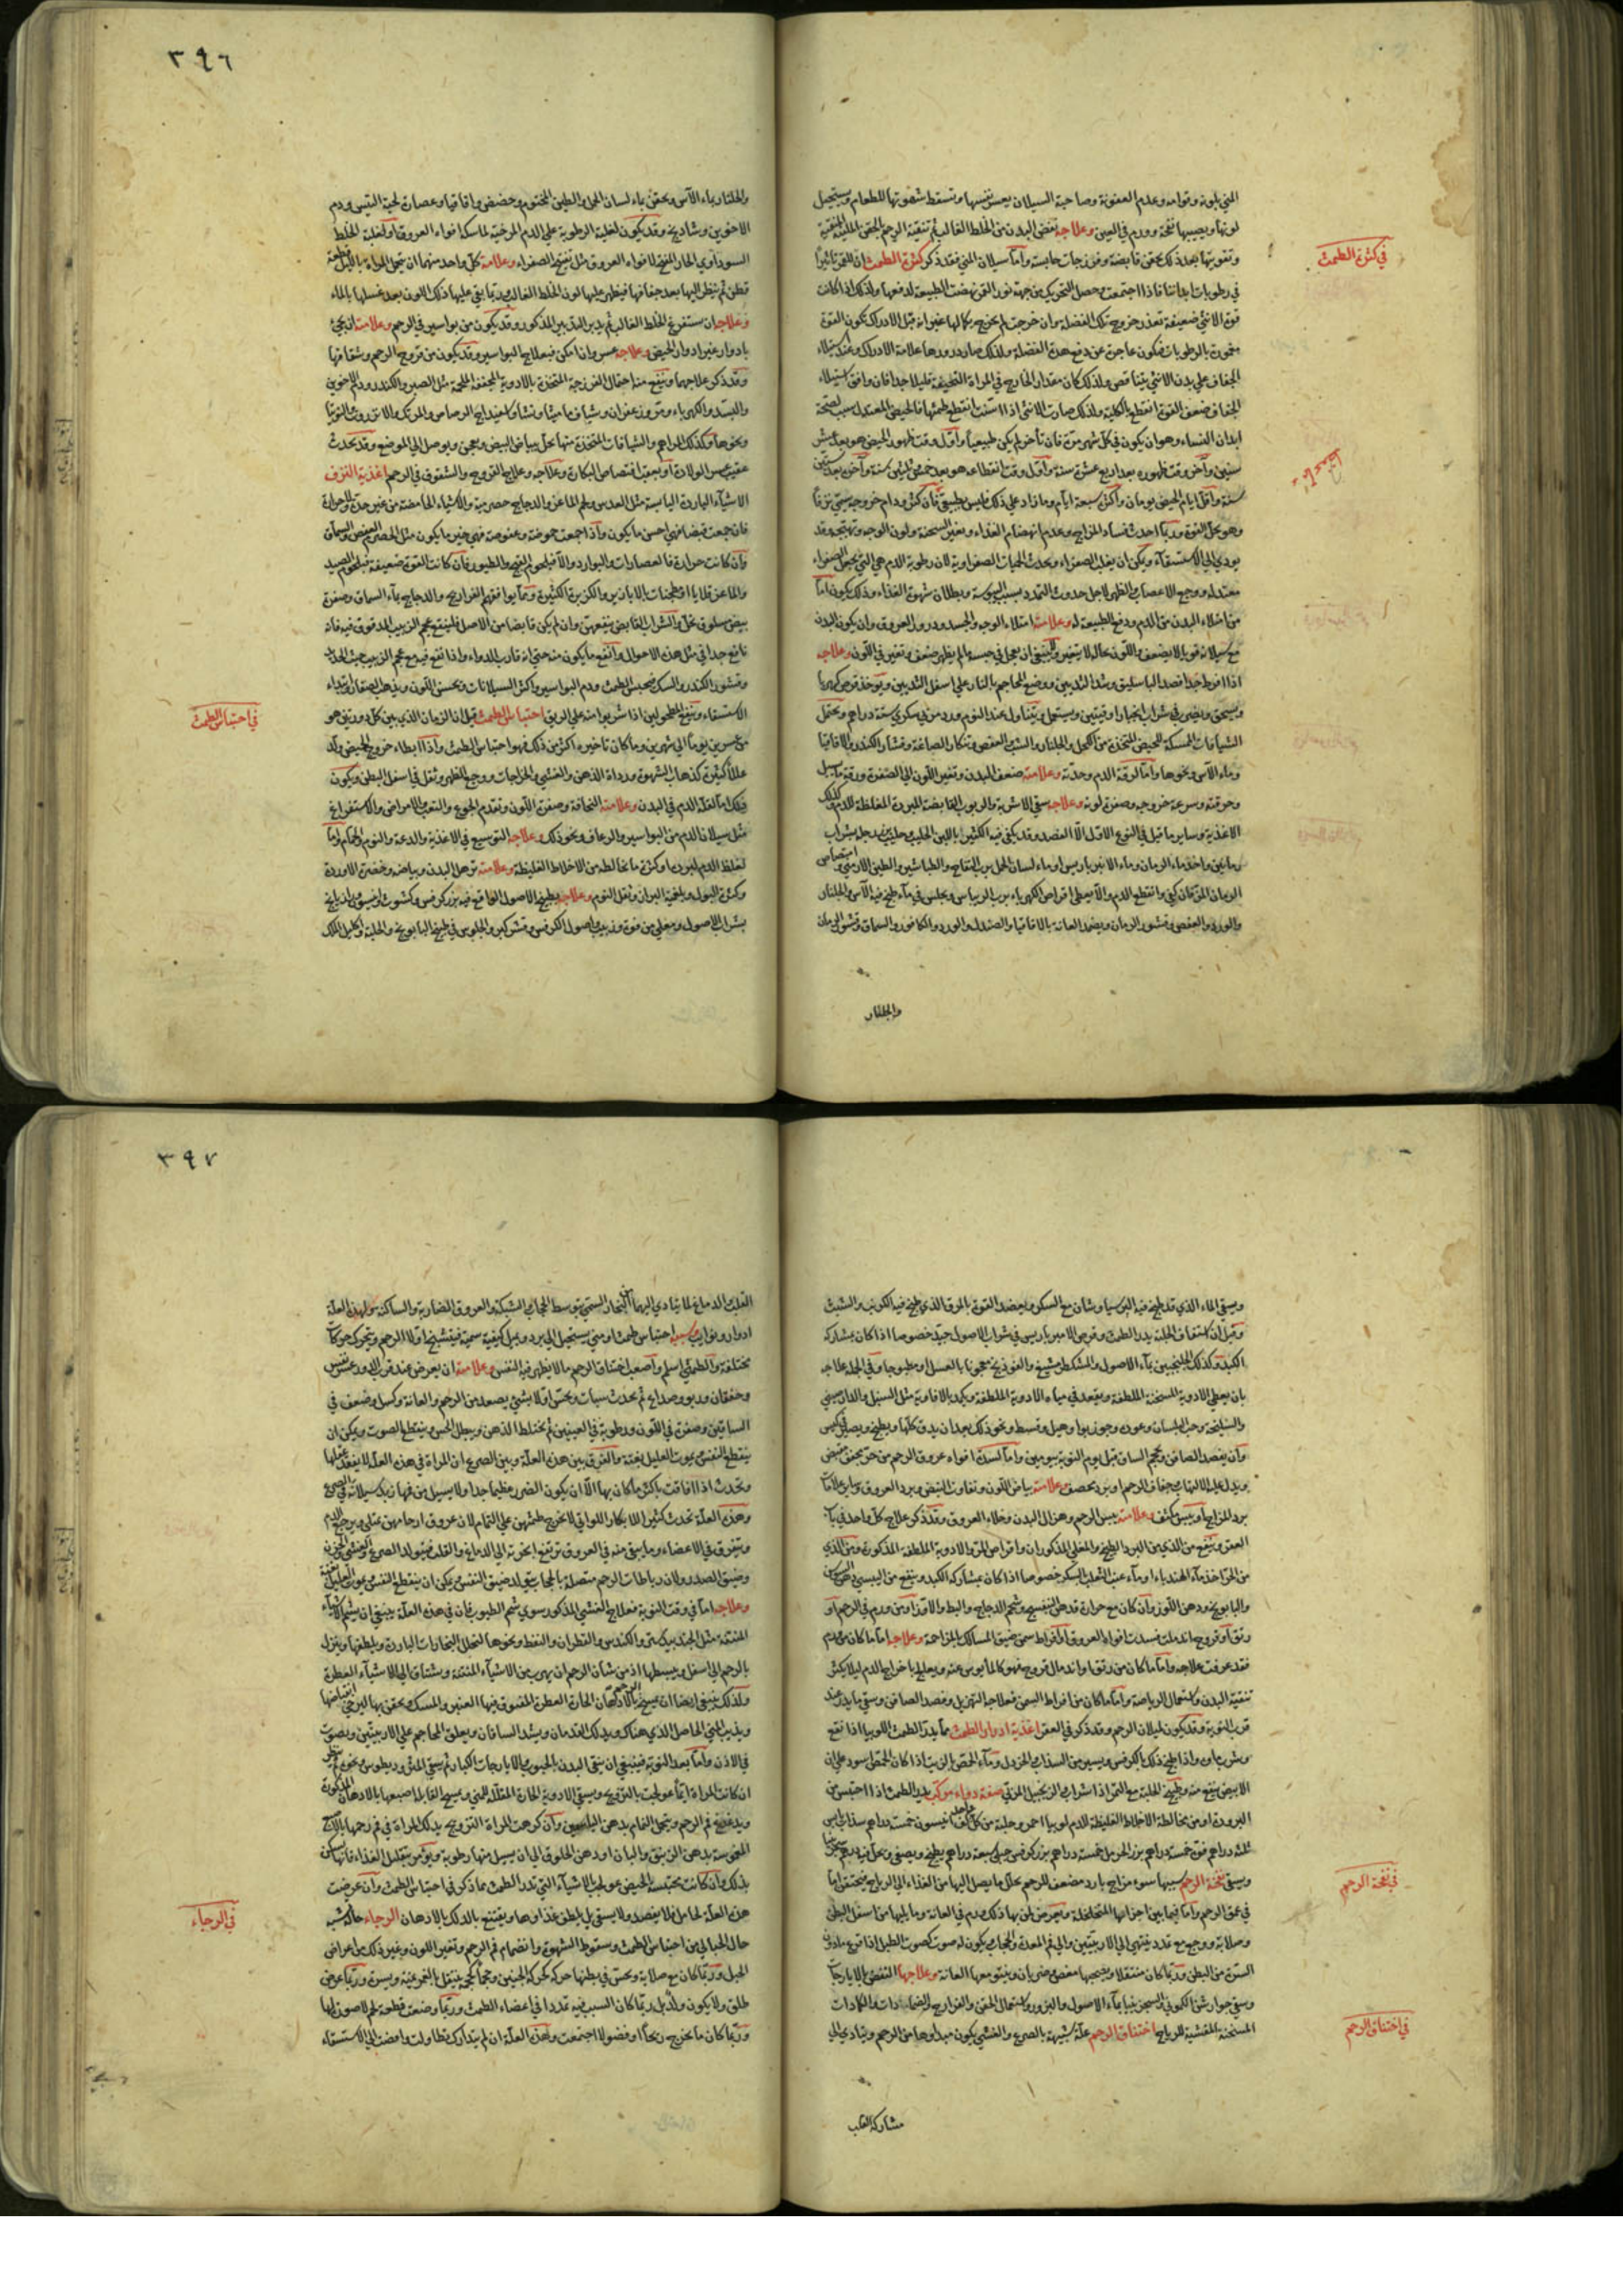 في كثرة الطمث
المني بلونه وقوامه وعدم العفونة وصاحبة السيلان يعسر نفسها وتسقط شهوتها للطعام ويستحيل
لونها ويصيبها نفخة وورم في العين وعلاجه نفض البدن من الخلط الغالب ثم تنقية الرحم بالحقن الملينة المنقية
وتقويتها بعد ذلك بحقن قابضة وفرزجات حابسة وأما سيلان المني فقد ذكر كثرة الطمث ان للقمر تأثيرا
في رطوبات ابداننا فاذا اجتمعت وحصل التحريك من جهة نور القمر نهضت الطبيعة لدفعها ولذلك اذا كانت
قوة الانثى ضعيفة تعذر خروج تلك الفضلة وان خرجت لم يخرج بكمالها غير انه قبل الادراك تكون القوة
مغمورة بالرطوبات فتكون عاجزة عن دفع هذه الفضلة ولذلك صار درورها علامة الادراك وعند استيلاء
الجفاف على بدن الانثى يتناقص ولذلك كان مقدار الخارج في المراة النحيفة قليلا جدا فان وافق استيلاء
الجفاف ضعف القوة انقطع بالكلية ولذلك صارت الانثى اذا اسنت انقطع طمثها فالحيض المعتدل سبب لصحة
ابدان النساء وهو ان يكون في كل شهر مرة فان تأخر لم يكن طبيعيا وأول وقت ظهور الحيض هو بعد عشر
سنين وآخر وقت ظهوره بعد اربع عشرة سنة وأول وقت انقطاعه هو بعد خمس وثلثين سنة وآخره بعد ستين
سنة وأقل ايام الحيض يومان وأكثره سبعة ايام وما زاد على ذلك فليس بطبيعي فان كثر ودام خروجه سمي نزفا
وهو يحل القوة وربما احدث فساد المزاج وعدم انهضام الغذاء وتغير السحنة ولون الوجه وتهيجه وقد
يودي الى الاستسقاء ويمكن ان يغلب الصفراء ويحدث الحميات الصفراوية لان رطوبة الدم هي التي تجعل الصفراء
معتدلة ووجع الاعصاب والظهر لاجل حدوث التمدد بسبب اليبوسة وبطلان شهوة الغذاء وذلك يكون اما
من امتلاء البدن من الدم ودفع الطبيعة له وعلامته امتلاء الوجه والجسد ودرور العروق وان يكون البدن
مع سيلانه قويا لا يضعف واللون بحاله لا يتغير ولا ينبغي ان يعجل في حبسه ما لم يظهر ضعف وتغير في اللون وعلاجه
اذا افرط جدا فصد الباسليق وشد الثديين ووضع المحاجم بالنار على اسفل الثديين ويوخذ قرص كهربا
ويسحق ويضرب في شراب انجبار اوقيتين ويستعمل ويتناول عند النوم ورد مربى سكري ستة دراهم وتحتمل
الشيافات الممسكة للحيض المتخذة من الكحل والجلنار والشب والعفص وتنكار الصاغة وقشار الكندر والاقاقيا
وماء الآس ونحوها واما لرقة الدم وحدته وعلامته ضعف البدن وتغير اللون الى الصفرة ورقة ما يسيل
وحرقته وسرعة خروجه وصفرة لونه وعلاجه سقي الاشربة والربوب القابضة المبردة المغلظة للدم وكذلك
الاغذية وساير ما قيل في النوع الاول الا الفصد وقد يكفي فيه الكثيرا باللبن الحليب
الرمان المز فان كفي وانقطع الدم والا يعطى اقراص الكهرباء برب الريباس ويجلس في ماء طبخ فيه الآس والجلنار
والورد والعفص وقشور الرمان ويضمد العانة بالاقاقيا والصندل والورد والكافور والسماق وقشور الرمان
والجلنار
٣٩٦
في احتباس الطمث
والجلنار بماء الآس ويحقن بماء لسان الحمل والطين المختوم وحضض واقاقيا وعصارة لحية التيس ودم
الاخوين وشاذنج وقد يكون لغلبة الرطوبة على الدم المرخية لماسكة افواه العروق او لغلبة الخلط
السوداوي الحار المفتح لافواه العروق مثل تفتيح الصفراء وعلامة كل واحد منهما ان تتحمل المراة بالليل قطعة
قطن ثم ينظر اليها بعد جفافها فيظهر عليها لون الخلط الغالب وربما بقي عليها ذلك اللون بعد غسلها بالماء
وعلاجه ان يستفرغ الخلط الغالب ثم يدبر التدبير المذكور وقد يكون من بواسير في الرحم وعلامته ان يجيء
بادوار غير ادوار الحيض وعلاجه عسر وان امكن فبعلاج البواسير وقد يكون من قروح الرحم وشقاقها
وقد ذكر علاجهما وينفع منه احتمال الفرزجة المتخذة بالادوية المجففة الملحمة مثل الصبر والكندر ودم الاخوين
والبسد والكهرباء ومر وزعفران وشياف ماميثا ونشا واسفيداج الرصاص والمرتك والانزروت والتوتيا
ونحوها وكذلك المراهم والشيافات المتخذة منها تحل ببياض البيض ويعجن ويوصل الى الموضع وقد يحدث
عقيب عسر الولادة او بعقب افتضاض البكارة وعلاجه وعلاج القروح والشقوق في الرحم اغذية النزف
الاشياء الباردة اليابسة مثل العدس ولحم الماعز والدجاج حصرمية والاشياء الحامضة من غير حدة ولا حرارة
فان جمعت قبضا فهي احسن ما يكون واذا جمعت حموضة وعفوصة فهي خير ما يكون مثل الحصرم العفص والسماق
وان كانت حرارة فالعصارات والبوارد والا فبلحوم القبج والطيور فان كانت القوة ضعيفة فبلحوم الصيد
والماعز قلايا او مطجنات بالابازير والكزبرة الكثيرة ومما يوافقهم الفراريج والدجاج بماء السماق وصفرة
بيض مسلوق بخل والشراب القابض ينفعهن وان لم يكن قابضا من الاصل فلينقع عجم الزبيب المدقوق فيه فانه
نافع جدا في مثل هذه الاحوال وانفع ما يكون منه حتى انه قارب الدواء
وقشور الكندر والسك فيحبس الطمث ودم البواسير واكثر السيلانات ويحسن اللون ويذهب الصفار وابتداء
الاستسقاء وينفع المطحولين اذا شربوا منه على الريق احتباس الطمث قيل ان الزمان الذي بين كل دورتين هو
من عشرين يوما الى شهرين وما كان تاخيره اكثر من ذلك فهو احتباس الطمث واذا ابطاء خروج الحيض ولد
عللا كثيرة كذهاب الشهوة ورداة الذهن والغشي والخراجات ووجع الظهر وثقل في اسفل البطن ويكون
ذلك اما لقلة الدم في البدن وعلامته النحافة وصفرة اللون وتقدم الجوع والتعب والامراض والاستفراغ
مثل سيلان الدم من البواسير والرعاف ونحو ذلك وعلاجه التوسيع في الاغذية والدعة والنوم والحمام واما
لغلظ الدم لبرودة او كثرة ما يخالطه من الاخلاط الغليظة وعلامته ترهل البدن وبياضه وخضرة الاوردة
وكثرة البول وبلغمية البراز وثقل النوم وعلاجه بطبيخ الاصول الواقع فيه بزر كرفس وكشوث وانيسون ورازيانج
بشراب الاصول ومغلي من فوة وزبيب واصول الكرفس وقشر كبر والجلوس في طبيخ البابونج والحلبة واكليل الملك
في نفخة الرحم
في اختناق الرحم
ويسقى الماء الذي قد طبخ فيه البرسياوشان مع السكر ويضمد القوة بالمرق الذي طبخ فيه الكرنب والشبث
وقيل ان استفاف الحلبة يدر الطمث وقرص الامبرباريس في شراب الاصول جيد خصوصا اذا كان بمشاركة
الكبد وكذلك الجلنجبين بماء الاصول والمشكطرامشيغ والفوذنج معجونا بالعسل او مطبوخا وفي الجملة علاجه
بان يعطى الادوية المسخنة الملطفة ويقعد في مياه الادوية الملطفة ويكمد بالافاويه مثل السنبل والدارصيني
والسليخة وحب البلسان وعود وجوزبوا وهيل وقسط ونحو ذلك بعد ان يدق كلها ويطبخ ويصير في كيس
وان يفصد الصافن ويحجم الساق قبل يوم النوبة بيومين واما لسدة افواه عروق الرحم من حر مجفف مقبض
ويدل عليه الالتهاب وجفاف الرحم او برد محصف وعلامته بياض اللون وتفاوت النبض وبرد العروق وساير علامات
برد المزاج او يبس مكثف وعلامته يبس الرحم وهزال البدن وخلاء العروق وقد ذكر علاج كل واحد في باب
العقر وينفع من الذي من البرد الطبيخ والمغلي المذكوران واقراص المر والادوية الملطفة المذكورة ومن الذي
من الحر اخذ ماء الهندباء او ماء عنب الثعلب بالسكر خصوصا اذا كان بمشاركة الكبد وينفع من اليبسي دهن السوسن
والبابونج ودهن اللوز وان كان مع حرارة فدهن البنفسج وشحم الدجاج والبط والاوز او من ورم في الرحم او
رتق او قروح اندملت فسدت افواه العروق او افراط سمن ضيق المسالك بالمزاحمة وعلاجه اما ما كان من ورم
فقد عرفت علاجه واما ما كان من رتق او اندمال قروح فهو كالمأيوس عنه ويعالج باخراج الدم ليلا يكثر
تنقية البدن واستعمال الرياضة واما ما كان من افراط السمن فعلاجه التهزيل وفصد الصافن وسقي ما يدر عند
قرب النوبة وقد يكون لميلان الرحم وقد ذكر في العقر اغذية ادرار الطمث مما يدر الطمث اللوبيا اذا نقع
وشرب ماؤه واذا طبخ ذلك بالكرفس ويسير من السذاب والخردل وماء الحمص بالزيت اذا كان الحمص اسود على ان
الابيض ينفع منه وطبيخ الحلبة مع التمر اذا شراب الزنجبيل المربى صفة دواء مركب يدر الطمث اذا احتبس من
البرودة او من مخالطة الاخلاط الغليظة للدم لوبيا احمر وحلبة من كل واحد كف انيسون خمسة دراهم سذاب يابس
ثلثة دراهم فوة خمسة دراهم بزر الحرمل خمسة دراهم بزر كرفس جبلي سبعة دراهم يطبخ ويصفى
ويسقى نفخة الرحم سببها سوء مزاج بارد مضعف للرحم يحلل ما يصل اليها من الغذاء الى الرياح فيحتقن اما
في عمق الرحم واما فيما بين اجزائها المتخلخلة ويعرض لمن بها ذلك ورم في العانة وما يليها من اسفل البطن
وصلابة ووجع مع تمدد ينتهي الى الاربيتين والى فم المعدة والحجاب ويكون له صوت كصوت الطبل اذا قرع ما دون
السرة من البطن وربما كان متنقلا ويصحبها مغص وضربان وينتو معها العانة وعلاجها النفض بالايارجات
وسقي جوارشن الكموني والسجزينيا بماء الاصول والبزور واستعمال الحقن والفرازج والضمادات والكمادات
المسخنة المفشية للرياح اختناق الرحم علة شبيهة بالصرع والغشي يكون مبداؤها من الرحم ويتادى الى
مشاركة القلب
٣٩٧
في الرجاء
القلب والدماغ لما يتادى اليهما من البخار السمي بتوسط الحجاب والشبكة والعروق الضاربة والساكنة ولهذه العلة
ادوار ونوايب وسببه احتباس طمث او مني يستحيل الى برد ويميل كيفية سمية فيتشنج اولا الرحم ويتحرك حركات
مختلفة والطمثي اسلم واصعب اختناق الرحم ما لا يظهر فيه النفس وعلامته ان يعرض عند قرب الدور عسر نفس
وخفقان وربو وصداع ثم يحدث سبات ويحس اولا بشيء يصعد من الرحم والعانة وكسل وضعف في
الساقين وصفرة في اللون ورطوبة في العينين ثم يختلط الذهن ويبطل الحس وينقطع الصوت ويمكن ان
ينقطع النفس ويموت العليل بغتة والفرق بين هذه العلة وبين الصرع ان المراة في هذه العلة لا يفقد عقلها
وتحدث اذا افاقت باكثر ما كان بها الا ان يكون الضرر عظيما جدا ولا يسيل من فمها زبد سيلانه في الصرع
وهذه العلة تحدث كثيرا للابكار اللواتي لا يخرج طمثهن على التمام لان عروق ارحامهن تمتلي ويرجع الدم
ويتفرق في الاعضاء وما يبقى منه في العروق ترتفع ابخرته الى الدماغ والقلب فيتولد الصرع والغشي والحزن
وضيق الصدر ولان رباطات الرحم متصلة بالحجاب يتولد ضيق النفس ويمكن ان ينقطع النفس ويموت العليل بغتة
وعلاجه اما في وقت النوبة فعلاج الغشي المذكور سوى شم الطيوب فان في هذه العلة ينبغي ان يشم الاشياء
المنتنة مثل الجندبيدستر والكندس والقطران والنفط ونحوها لتحلل البخارات الباردة ويلطفها وينزل
بالرحم الى اسفل ويبسطها اذ من شان الرحم ان يهرب من الاشياء المنتنة ويشتاق الى الاشياء العطرة
ولذلك ينبغي ايضا ان يمسح الرحم بالادهان الحارة العطرة المفتوق فيها العنبر والمسك ويحقن بها ليرخي انقباضها
ويذيب المني الحاصل الذي هناك ويدلك القدمان ويشد الساقان ويعلق المحاجم على الاربيتين ويصوت
في الاذن واما بعد النوبة فينبغي ان ينقى البدن بالحبوب والايارجات الكبار ثم يسقى المثروديطوس ونحوه
ان كانت المراة ايما عولجت بالتزويج ويسقى الادوية الحارة المقللة للمني ويمسح القابلة اصبعها بالادهان المذكورة
ويدغدغ فم الرحم وينحى الفام بدهن الياسمين وان كرهت المراة التزويج يدلك المراة في فم رحمها
المغموسة بدهن الزنبق والبان او دهن الخلوق الى ان يسيل منها رطوبة ويؤمر بتقليل الغذاء فانها تسكن
بذلك وان كانت محتبسة الحيض عولجت بالاشياء التي تدر الطمث مما ذكر في احتباس الطمث وان عرضت
هذه العلة لحامل فلا يفصد ولا يسقى بل يلطف غذاوها ويقتنع بالدلك بالادهان الرجاء حالة شبه
حال الحبالى من احتباس الطمث وسقوط الشهوة وانضمام فم الرحم وتغير اللون وغير ذلك من اعراض
الحبل وربما كان مع صلابة ويحس في بطنها حركة كحركة الجنين وحجما كحجمه ينتقل بالغمز يمنة ويسرة وربما عرض
طلق ولا يكون ولد بل ربما كان السبب فيه تمددا في اعضاء الطمث وربما وضعت قطعة لحم لا صورة لها
وربما كان ما يخرج ريحا او فضولا اجتمعت وهذه العلة ان لم يتدارك تطاولت وافضت الى الاستسقاء